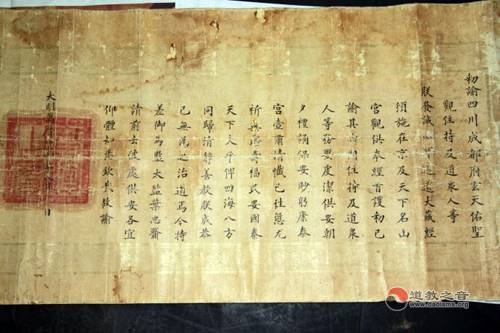 敕諭四川成都府玄天佑聖
觀住持及道眾人等
朕發誠心印造道大藏經
頒施在京及天下名山
宮觀供奉經首護勅已
諭其由爾住持及道眾
人等務要虔潔供安朝
夕禮誦保安眇躬康泰
宮壼肅清懺已往愆尤
祈無疆壽福民安國泰
天下太平俾四海八方
同歸清靜善教朕成恭
己無為之治道焉今特
差御馬監太監葉忠齎
請前去彼處供安各宜
仰體知悉欽哉故諭
大明萬曆 日
道教之音